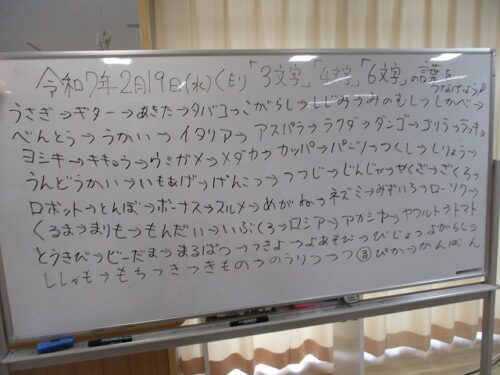 令和7年2月19日(水)(モリ)「3文字」「4文字」「6文字」の言葉をつなげよう
うさぎ→ギター→あきた→タバコ→こがらし→しじみ→うみのむし→しかべ→
べんとう→うかい→イタリア→アスパラ→ラクダ→ダンゴ→ゴリラ→ラッキョ
ヨシキ→キキョウ→ウミガメ→メダカ→カッパ→パンツ→つくし→しりょう→
うんどうかい→いもあげ→げんこつ→つつじ→じんじゃ→やくざ→ざくろ→
ロボット→とんぼ→ボーナス→スルメ→めがね→ネズミ→みずいろ→ローソク→
くるま→まりも→もんだい→いぶくろ→ロシア→アカシヤ→ヤクルト→トマト
とうきび→ビーだま→まるばつ→つきよ→よあそび→びじょ→よがらし→
ししゃも→もちつき→きもの→のうりつ→つるぴか→かんばん